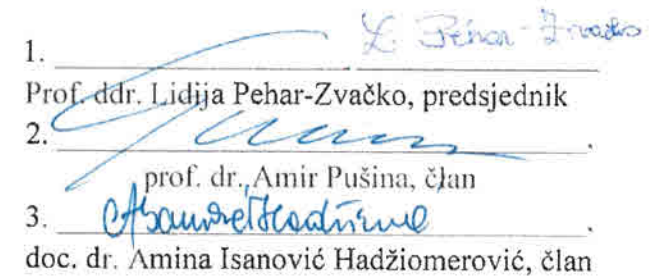 L. Pehar-Zvačko
1.
Prof. ddr. Lidija Pehar-Zvačko, predsjednik
2. .
prof. dr. Amir Pušina, član
3. .
doc. dr. Amina Isanović Hadžiomerović, član